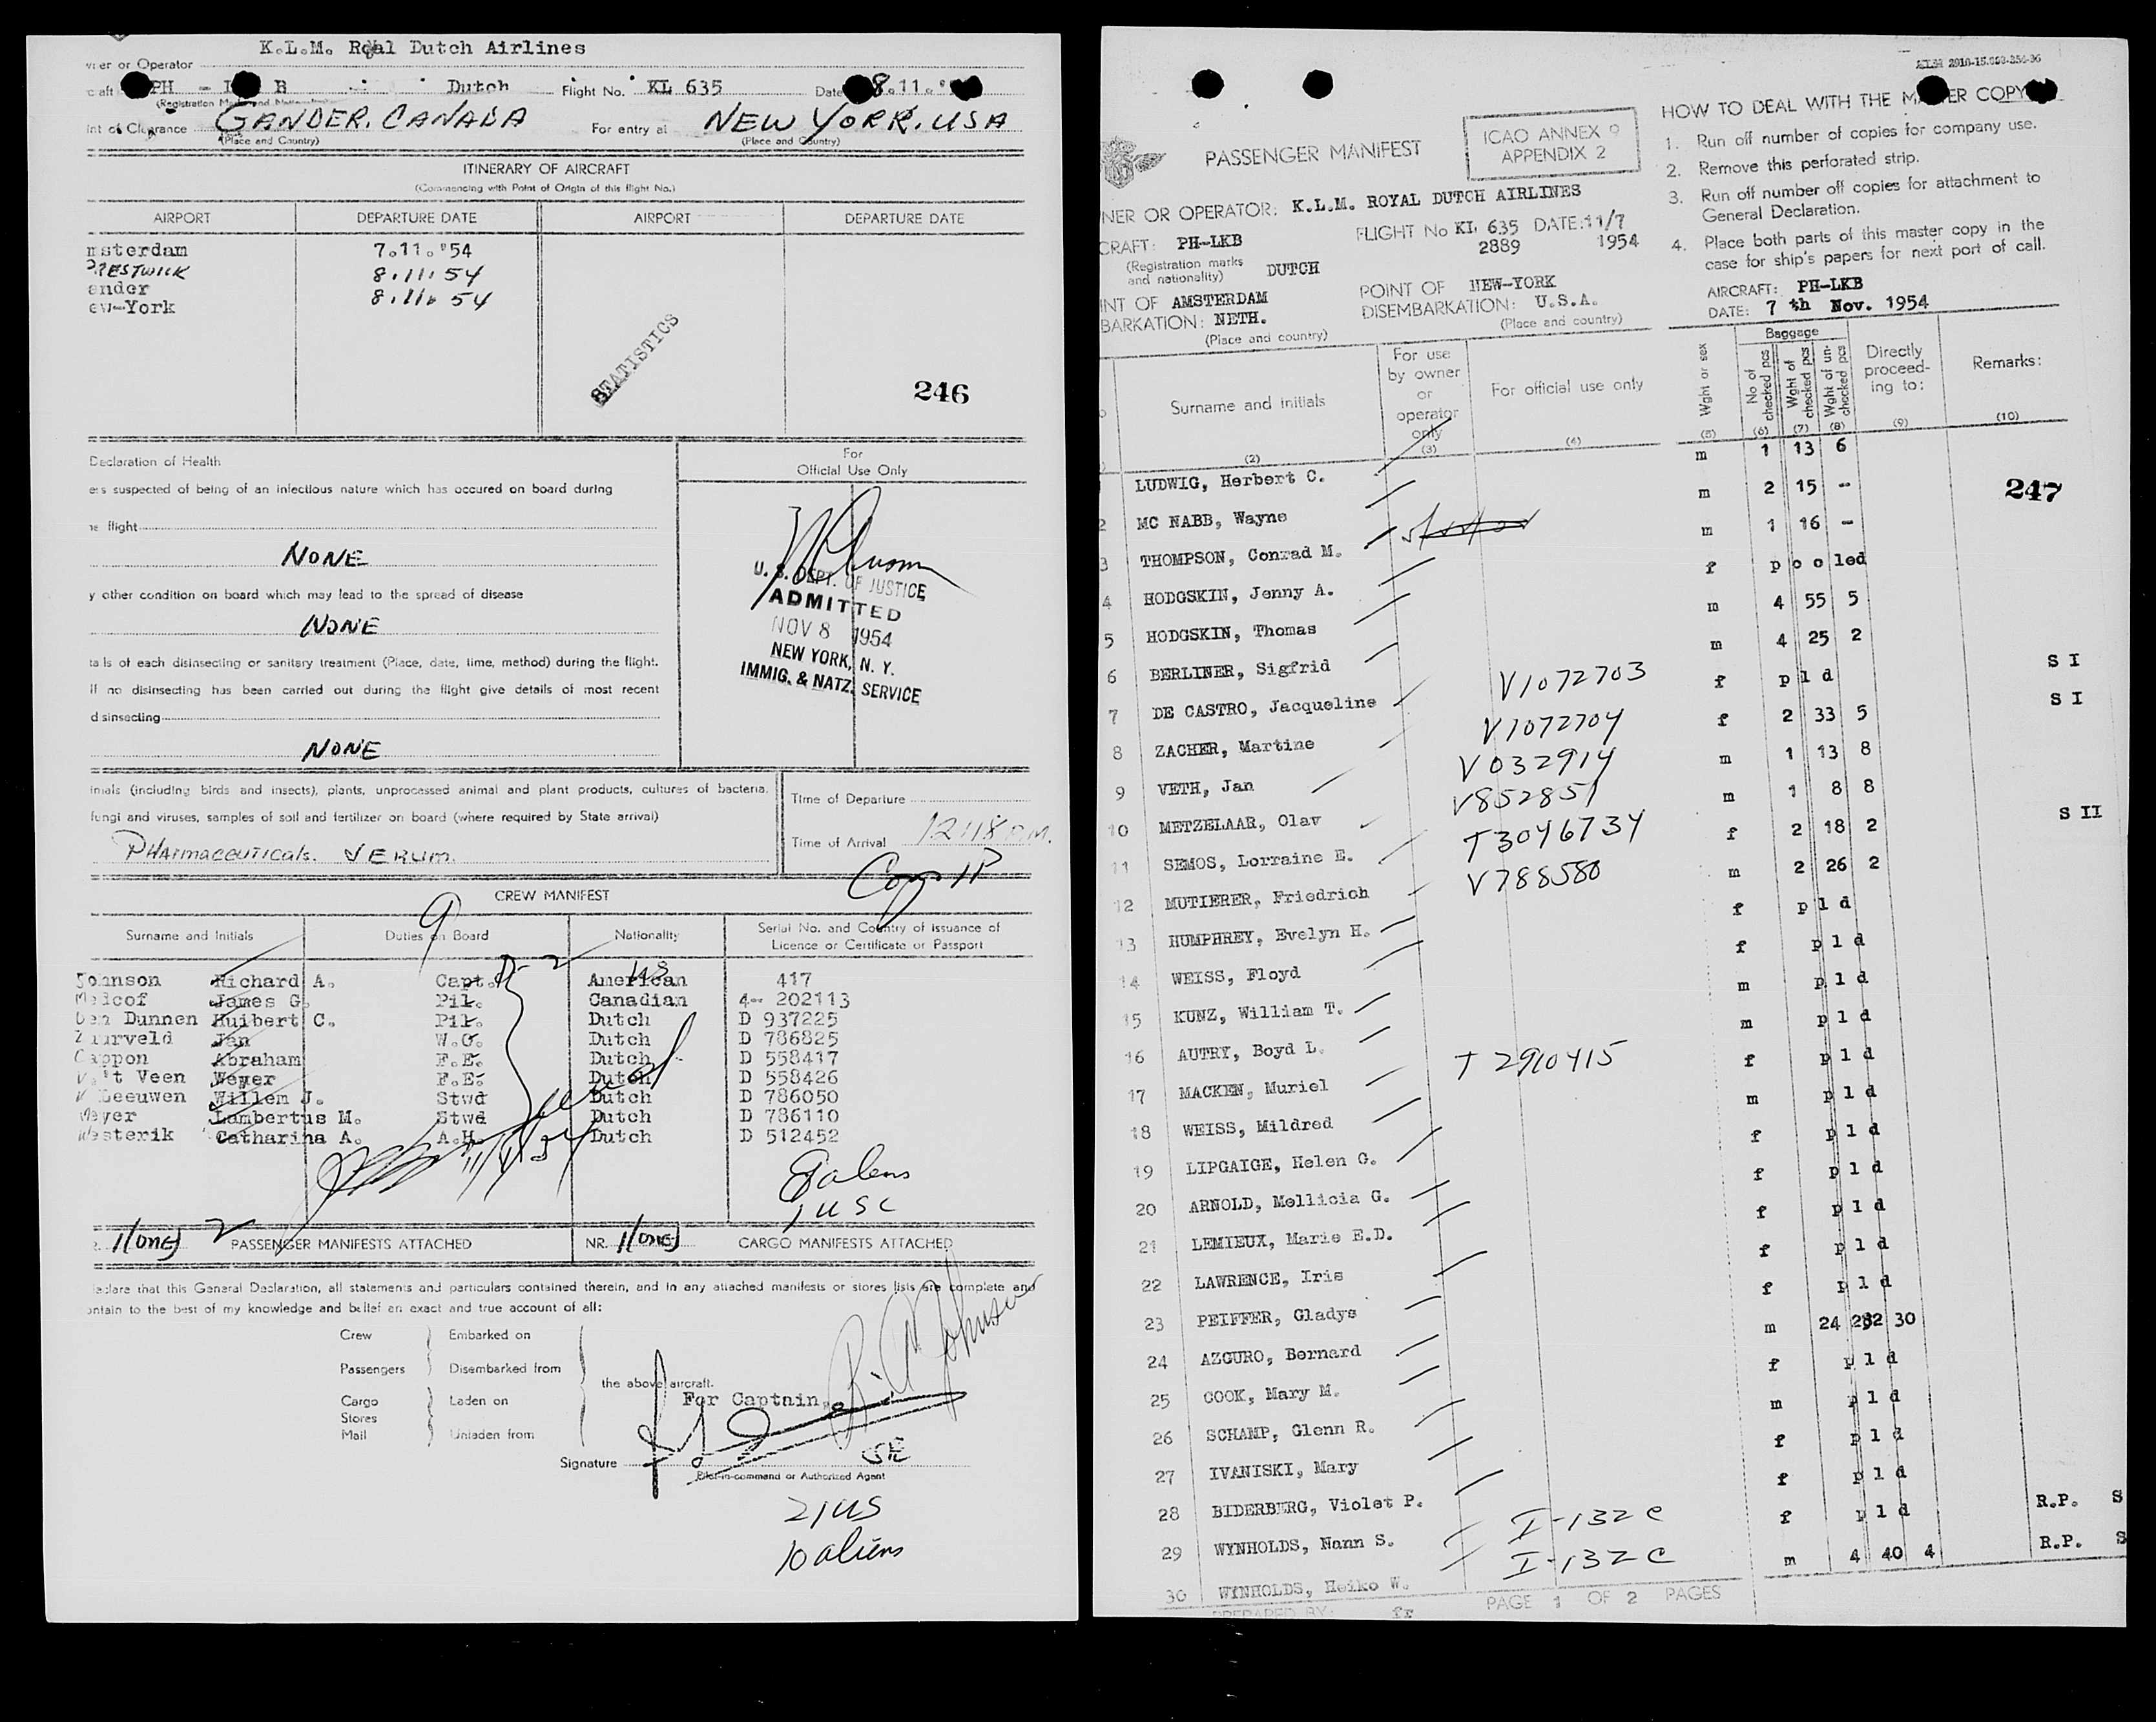 K.L.M. Royal Dutch Airlines
er or Operator
PH - B Dutch Flight No. KL 635 Date 8.11.
(Registration Marks and Nationality)
int of Clearance GANDER, CANADA For entry at NEW YORK, USA
(Place and Country) (Place and Country)
ITINERARY OF AIRCRAFT
(Commencing with Point of Origin of this flight No.)
AIRPORT DEPARTURE DATE AIRPORT DEPARTURE DATE
msterdam 7.11.'54
PRESTWICK 8.11.54
ander 8.11.54
ew-York
STATISTICS
246
Declaration of Health
ess suspected of being of an infectious nature which has occured on board during
he flight
NONE
y other condition on board which may lead to the spread of disease
NONE
tails of each disinsecting or sanitary treatment (Place, date, time, method) during the flight.
If no disinsecting has been carried out during the flight give details of most recent
disinsecting
NONE
For
Official Use Only
U. S. DEPT. OF JUSTICE
ADMITTED
NOV 8 1954
NEW YORK, N. Y.
IMMIG. & NATZ. SERVICE
imals (including birds and insects), plants, unprocessed animal and plant products, cultures of bacteria,
fungi and viruses, samples of soil and fertilizer on board (where required by State arrival)
PHarmaceuticals.
Time of Departure
Time of Arrival 1218 P.M.
CREW MANIFEST
9
Surname and Initials Duties on Board Nationality Serial No. and Country of issuance of
Licence or Certificate or Passport
Johnson Richard A. Capt. American 417
Melcof James G. Pil. Canadian 4- 202113
Den Dunnen Huibert C. Pil. Dutch D 937225
Zuurveld Jan W.O. Dutch D 786825
Cappon Abraham F.E. Dutch D 558417
V.'t Veen Weyer F.E. Dutch D 558426
V Leeuwen Willem J. Stwd Dutch D 786050
Meyer Lambertus M. Stwd Dutch D 786110
Westerik Catharina A. A.H. Dutch D 512452
8 aliens
1 USC
1(ONE) 2 PASSENGER MANIFESTS ATTACHED NR. 1(ONE) CARGO MANIFESTS ATTACHED
declare that this General Declaration, all statements and particulars contained therein, and in any attached manifests or stores lists are complete and
ontain to the best of my knowledge and belief an exact and true account of all:
Crew Embarked on
Passengers Disembarked from
the above aircraft.
Cargo Laden on
Stores
Mail Unladen from
For Captain,
R. A. Johnson
Signature
Pilot-in-command or Authorized Agent
21 US
10 aliens
HOW TO DEAL WITH THE MASTER COPY
1. Run off number of copies for company use.
2. Remove this perforated strip.
3. Run off number off copies for attachment to
General Declaration.
4. Place both parts of this master copy in the
case for ship's papers for next port of call.
AIRCRAFT: PH-LKB
DATE: 7 th Nov. 1954
PASSENGER MANIFEST
ICAO ANNEX 9
APPENDIX 2
NER OR OPERATOR: K.L.M. ROYAL DUTCH AIRLINES
CRAFT: PH-LKB FLIGHT No KL 635 DATE: 11/7
2889 1954
(Registration marks
and nationality) DUTCH
INT OF AMSTERDAM POINT OF NEW-YORK
BARKATION: NETH. DISEMBARKATION: U.S.A.
(Place and country) (Place and country)
Surname and initials
(2)
For use
by owner
or
operator
only
(3)
For official use only
(4)
Wght or sex
(5)
Baggage
No of checked pcs
(6)
Wght of checked pcs
(7)
Wght of un-checked pcs
(8)
Directly
proceed-
ing to:
(9)
Remarks:
(10)
247
LUDWIG, Herbert C. m 1 13 6
2 MC NABB, Wayne m 2 15 -
3 THOMPSON, Conrad M. m 1 16 -
4 HODGSKIN, Jenny A. f pooled
5 HODGSKIN, Thomas m 4 55 5
6 BERLINER, Sigfrid m 4 25 2
7 DE CASTRO, Jacqueline V1072703 f pld S I
8 ZACHER, Martine V1072704 f 2 33 5 S I
9 VETH, Jan V032914 m 1 13 8
10 METZELAAR, Olav V852851 m 1 8 8
11 SEMOS, Lorraine E. T3046734 f 2 18 2 S II
12 MUTIERER, Friedrich V788580 m 2 26 2
13 HUMPHREY, Evelyn H. f pld
14 WEISS, Floyd f pld
15 KUNZ, William T. m pld
16 AUTRY, Boyd L. m pld
17 MACKEN, Muriel T 2910415 f pld
18 WEISS, Mildred m pld
19 LIPGAIGE, Helen G. f pld
20 ARNOLD, Mellicia G. f pld
21 LEMIEUX, Marie E.D. f pld
22 LAWRENCE, Iris f pld
23 PEIFFER, Gladys f pld
24 AZGURO, Bernard m 24 282 30
25 COOK, Mary M. f pld
26 SCHAMP, Glenn R. m pld
27 IVANISKI, Mary f pld
28 BIDERBERG, Violet P. f pld
29 WYNHOLDS, Nann S. I-132C f pld R.P. S
30 WYNHOLDS, Heiko W. I-132C m 4 40 4 R.P. S
PREPARED BY: fr PAGE 1 OF 2 PAGES